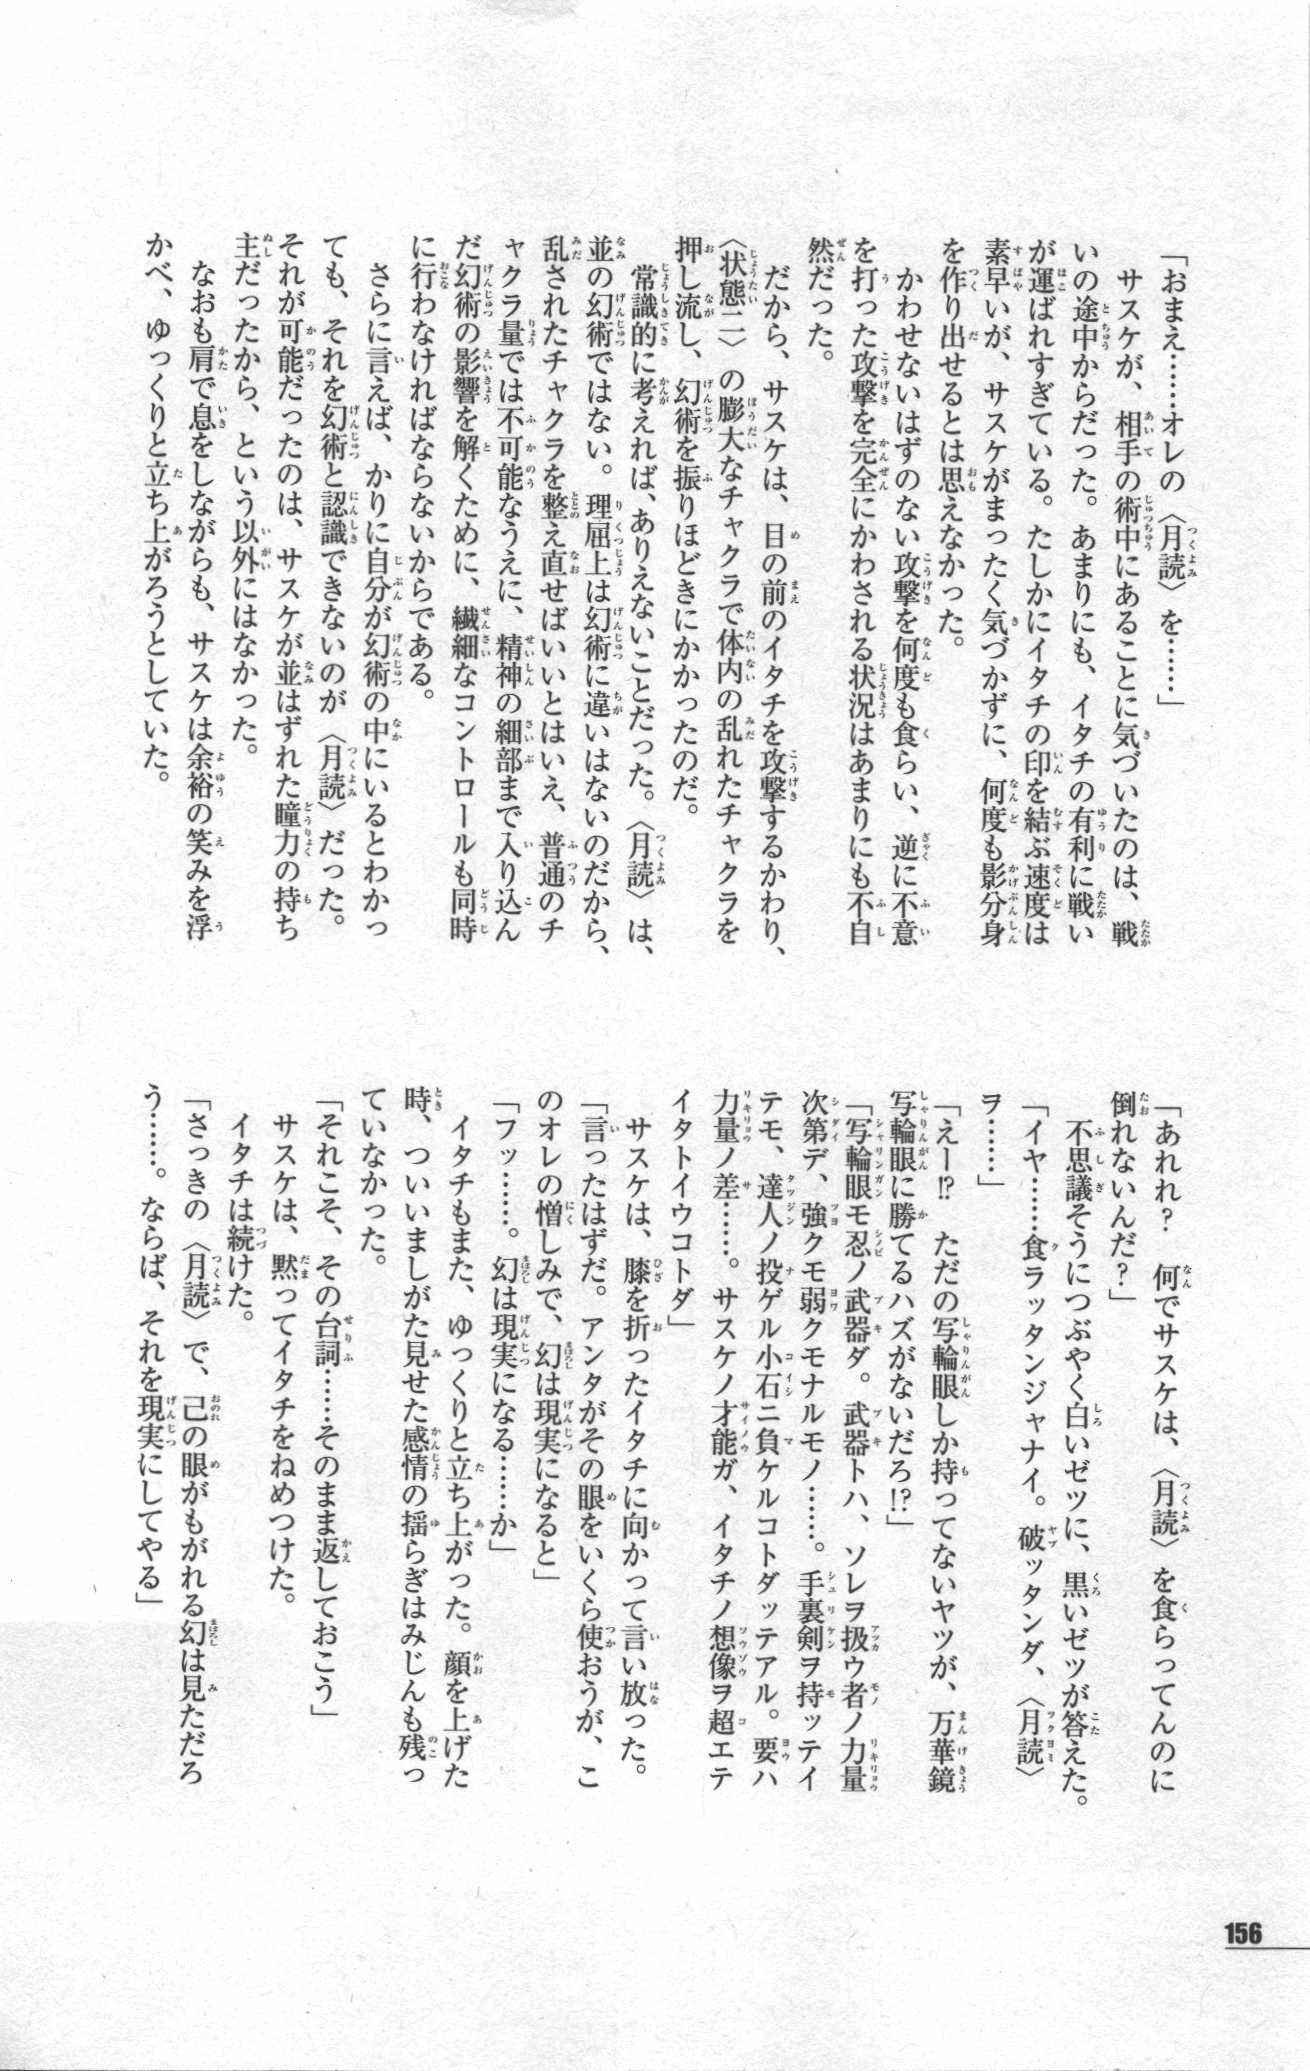 「おまえ……オレの〈月読〉を……」
サスケが、相手の術中にあることに気づいたのは、戦
いの途中からだった。あまりにも、イタチの有利に戦い
が運ばれすぎている。たしかにイタチの印を結ぶ速度は
素早いが、サスケがまったく気づかずに、何度も影分身
を作り出せるとは思えなかった。
かわせないはずのない攻撃を何度も食らい、逆に不意
を打った攻撃を完全にかわされる状況はあまりにも不自
然だった。
だから、サスケは、目の前のイタチを攻撃するかわり、
〈状態二〉の膨大なチャクラで体内の乱れたチャクラを
押し流し、幻術を振りほどきにかかったのだ。
常識的に考えれば、ありえないことだった。〈月読〉は、
並の幻術ではない。理屈上は幻術に違いはないのだから、
乱されたチャクラを整え直せばいいとはいえ、普通のチ
ャクラ量では不可能なうえに、精神の細部まで入り込ん
だ幻術の影響を解くために、繊細なコントロールも同時
に行わなければならないからである。
さらに言えば、かりに自分が幻術の中にいるとわかっ
ても、それを幻術と認識できないのが〈月読〉だった。
それが可能だったのは、サスケが並はずれた瞳力の持ち
主だったから、という以外にはなかった。
なおも肩で息をしながらも、サスケは余裕の笑みを浮
かべ、ゆっくりと立ち上がろうとしていた。
「あれれ？　何でサスケは、〈月読〉を食らってんのに
倒れないんだ？」
不思議そうにつぶやく白いゼツに、黒いゼツが答えた。
「イヤ……食ラッタンジャナイ。破ッタンダ、〈月読〉
ヲ……」
「えー!?　ただの写輪眼しか持ってないヤツが、万華鏡
写輪眼に勝てるハズがないだろ!?」
「写輪眼モ忍ノ武器ダ。武器トハ、ソレヲ扱ウ者ノ力量
次第デ、強クモ弱クモナルモノ……。手裏剣ヲ持ッテイ
テモ、達人ノ投ゲル小石ニ負ケルコトダッテアル。要ハ
力量ノ差……。サスケノ才能ガ、イタチノ想像ヲ超エテ
イタトイウコトダ」
サスケは、膝を折ったイタチに向かって言い放った。
「言ったはずだ。アンタがその眼をいくら使おうが、こ
のオレの憎しみで、幻は現実になると」
「フッ……。幻は現実になる……か」
イタチもまた、ゆっくりと立ち上がった。顔を上げた
時、ついいましがた見せた感情の揺らぎはみじんも残っ
ていなかった。
「それこそ、その台詞……そのまま返しておこう」
サスケは、黙ってイタチをねめつけた。
イタチは続けた。
「さっきの〈月読〉で、己の眼がもがれる幻は見ただろ
う……。ならば、それを現実にしてやる」
156